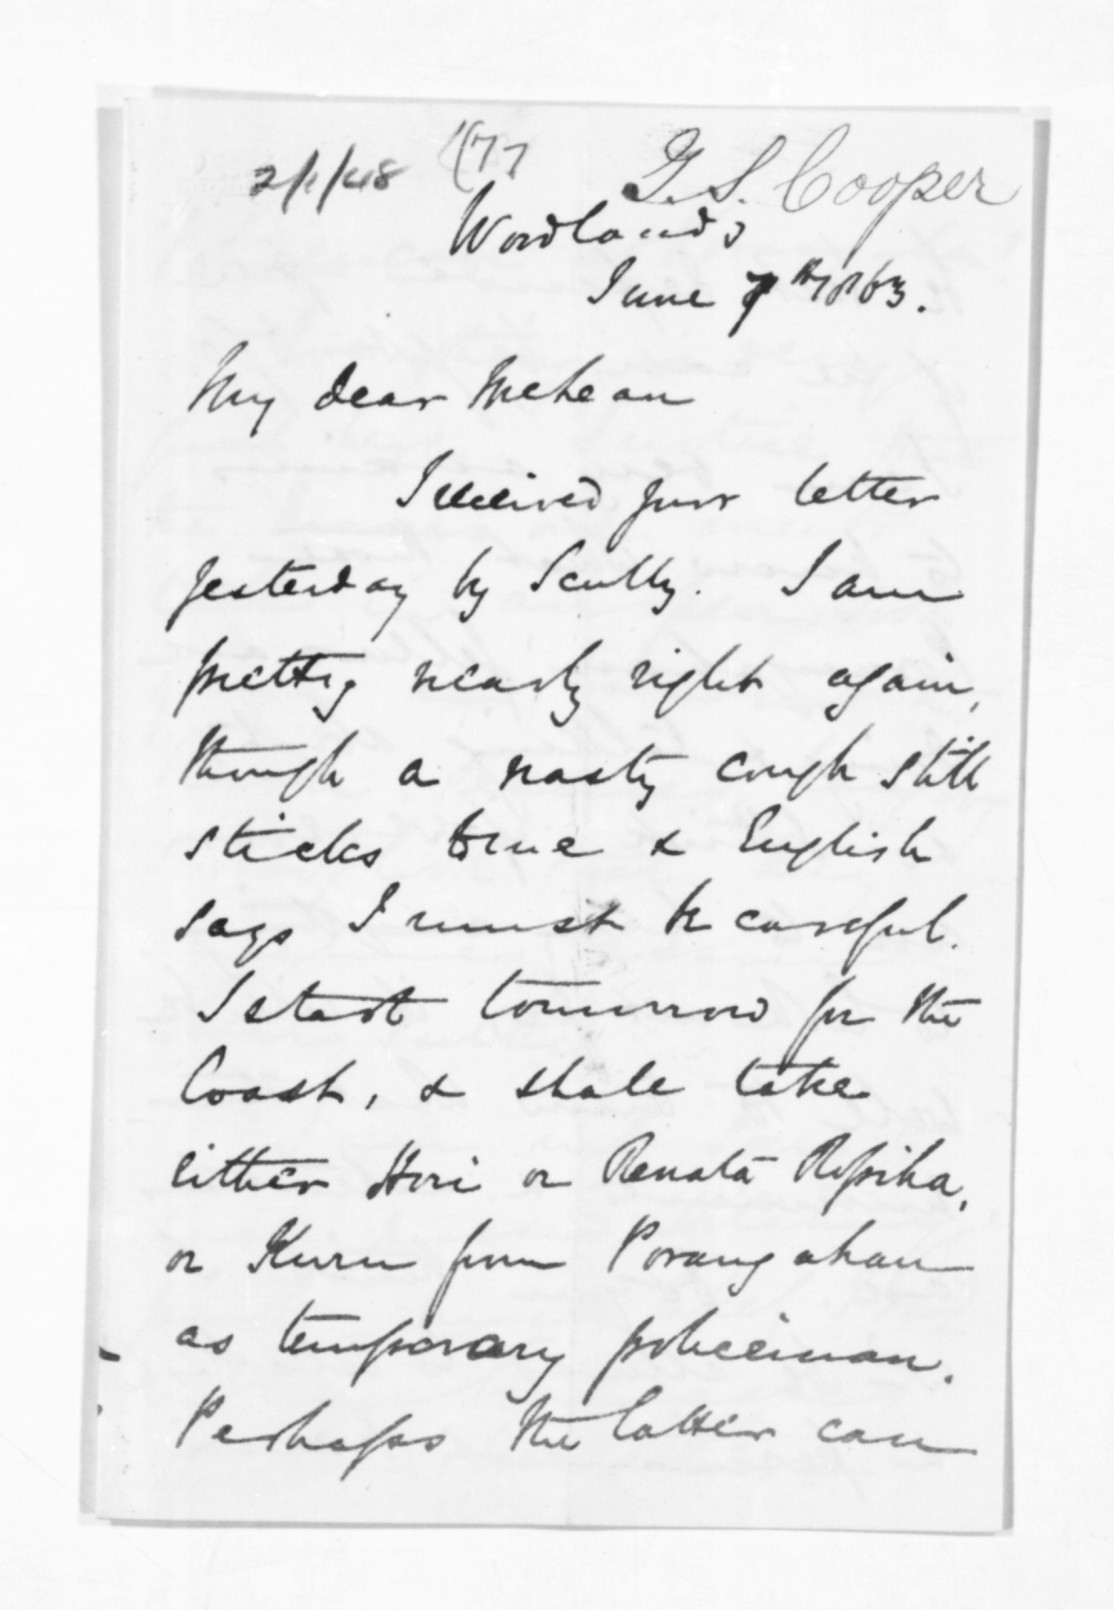 2/1/48 177 G. S. Cooper
Woodlands
June 7th 1863.
My dear McLean
I received your letter
yesterday by Scully. I am
pretty nearly right again,
though a nasty cough still
sticks to me & English
says I must be careful.
I start tomorrow for the
Coast, & shall take
either Hori or Renata Ropiha,
or Kuru from Porangahau
as temporary policeman.
Perhaps the latter can